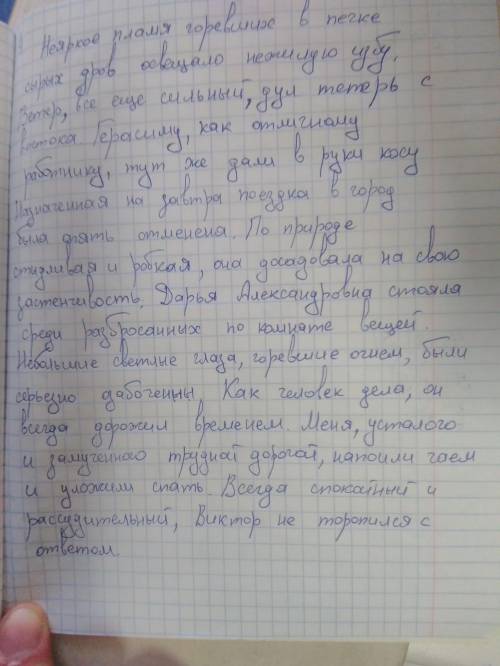 Неяркое пламя горевших в печке
сырых дров освещало нежилую избу.
Ветер, все еще сильный, дул теперь с
востока Герасиму, как отличному
работнику, тут же дали в руки косу
Назначенная на завтра поездка в город
была опять отменена. По природе
стыдливая и робкая, она досадовала на свою
застенчивость. Дарья Александровна стояла
среди разбросанных по комнате вещей.
Небольшие светлые глаза, горевшие огнем, были
серьезно дабоченны. Как человек дела, он
всегда дорожил временем. Меня, усталого
и замученного трудной дорогой, напоили чаем
и уложили спать. Всегда спокойный и
рассудительный, Виктор не торопился с
ответом.